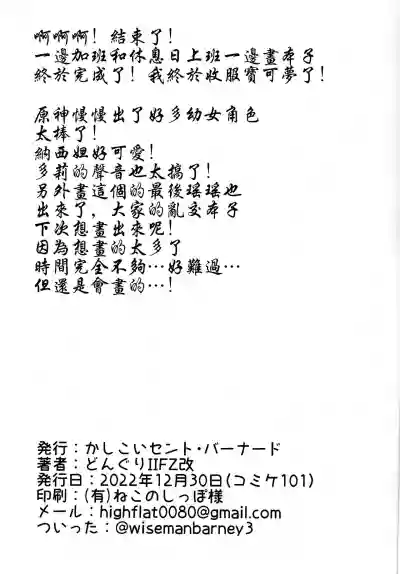 啊啊啊! 結束了!
一邊加班和休息日上班一邊畫本子
終於完成了! 我終於收服寶可夢了!
原神慢慢出了好多幼女角色
太棒了!
納西妲好可愛!
多莉的聲音也太搞了!
另外畫這個的最後瑶瑶也
出來了, 大家的亂交本子
下次想畫出來呢!
因為想畫的太多了
時間完全不夠…好難過…
但還是會畫的…!
発行：かしこいセント・バーナード
著者：どんぐりIIFZ改
発行日：2022年12月30日(コミケ101)
印刷：(有)ねこのしっぽ様
メール：highflat0080@gmail.com
ついった：@wisemanbarney3